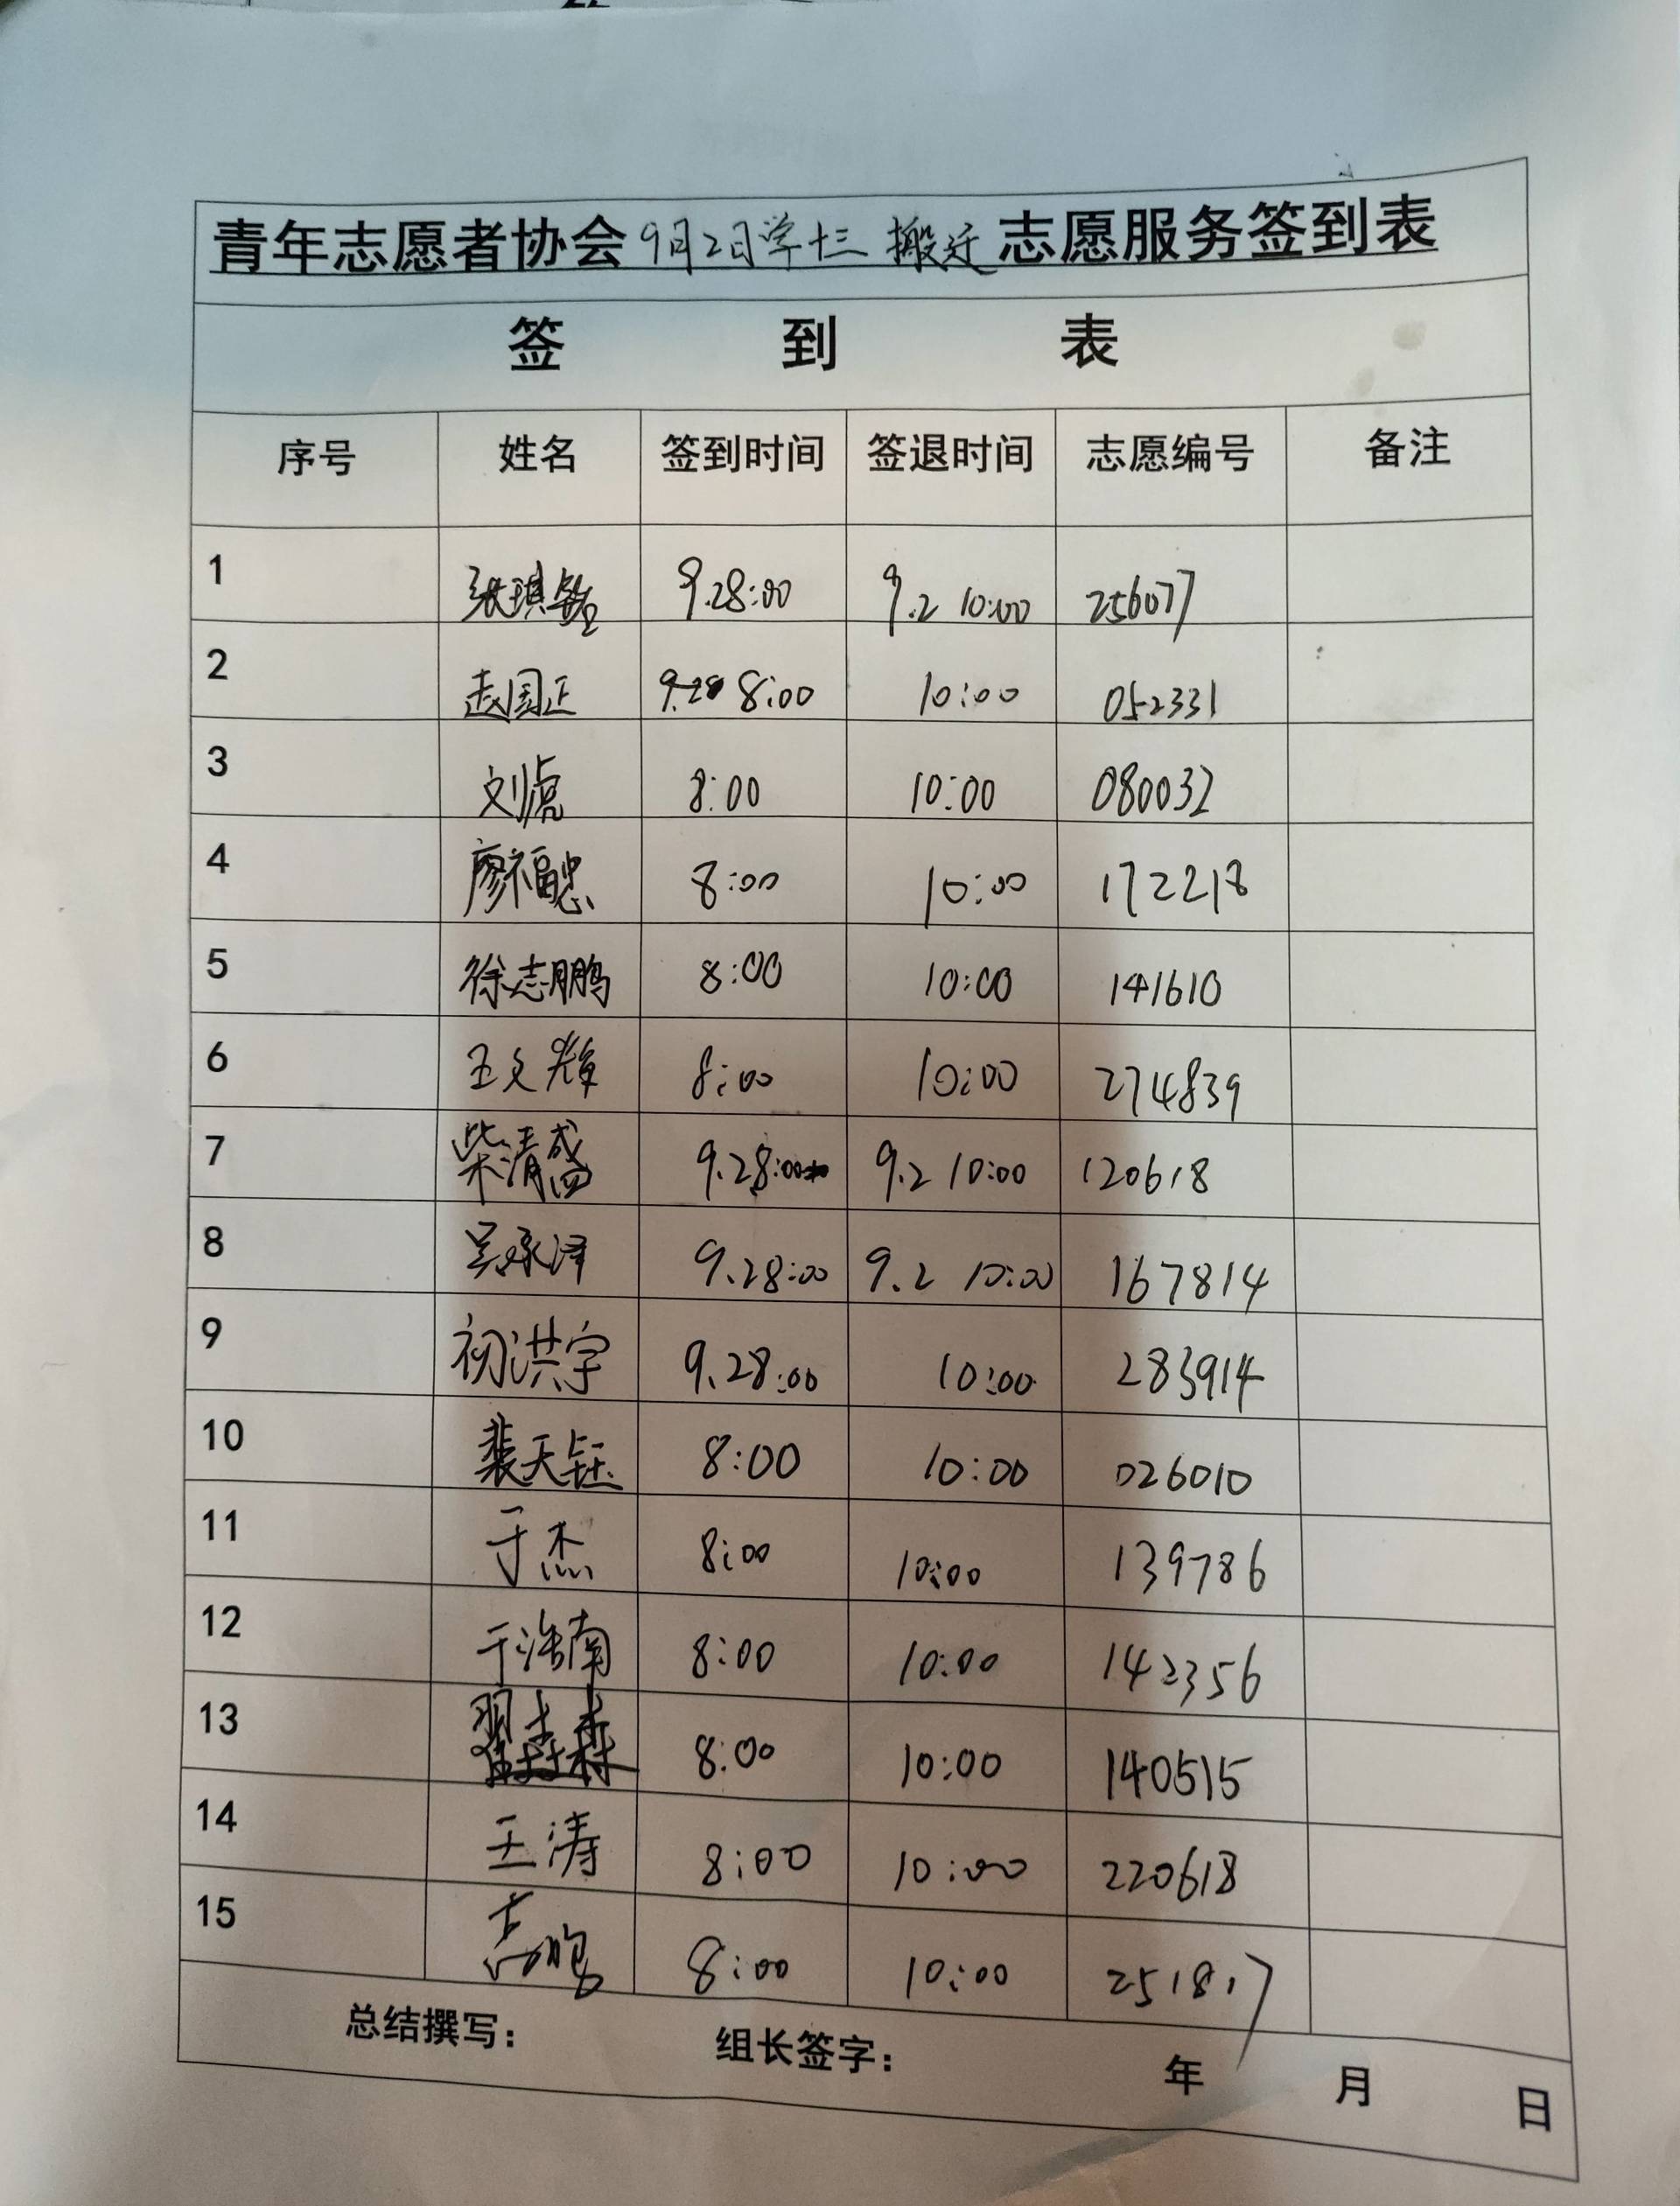 青年志愿者协会9月2日学十三 搬迁志愿服务签到表
签 到 表
序号 姓名 签到时间 签退时间 志愿编号 备注
1 张琪 9.28:00 9.2 10:00 256077
2 赵国正 8:00 10:00 052331
3 刘虎 8:00 10:00 080032
4 廖福忠 8:00 10:00 172218
5 徐志鹏 8:00 10:00 141610
6 王文辉 8:00 10:00 274839
7 柴清盛 9.28:00 9.2 10:00 120618
8 吴承泽 9.28:00 9.2 10:00 167814
9 初洪宇 9.28:00 10:00 283914
10 裴天钰 8:00 10:00 026010
11 于杰 8:00 10:00 139786
12 于浩南 8:00 10:00 142356
13 8:00 10:00 140515
14 王涛 8:00 10:00 220618
15 8:00 10:00 251817
总结撰写： 组长签字： 年 月 日